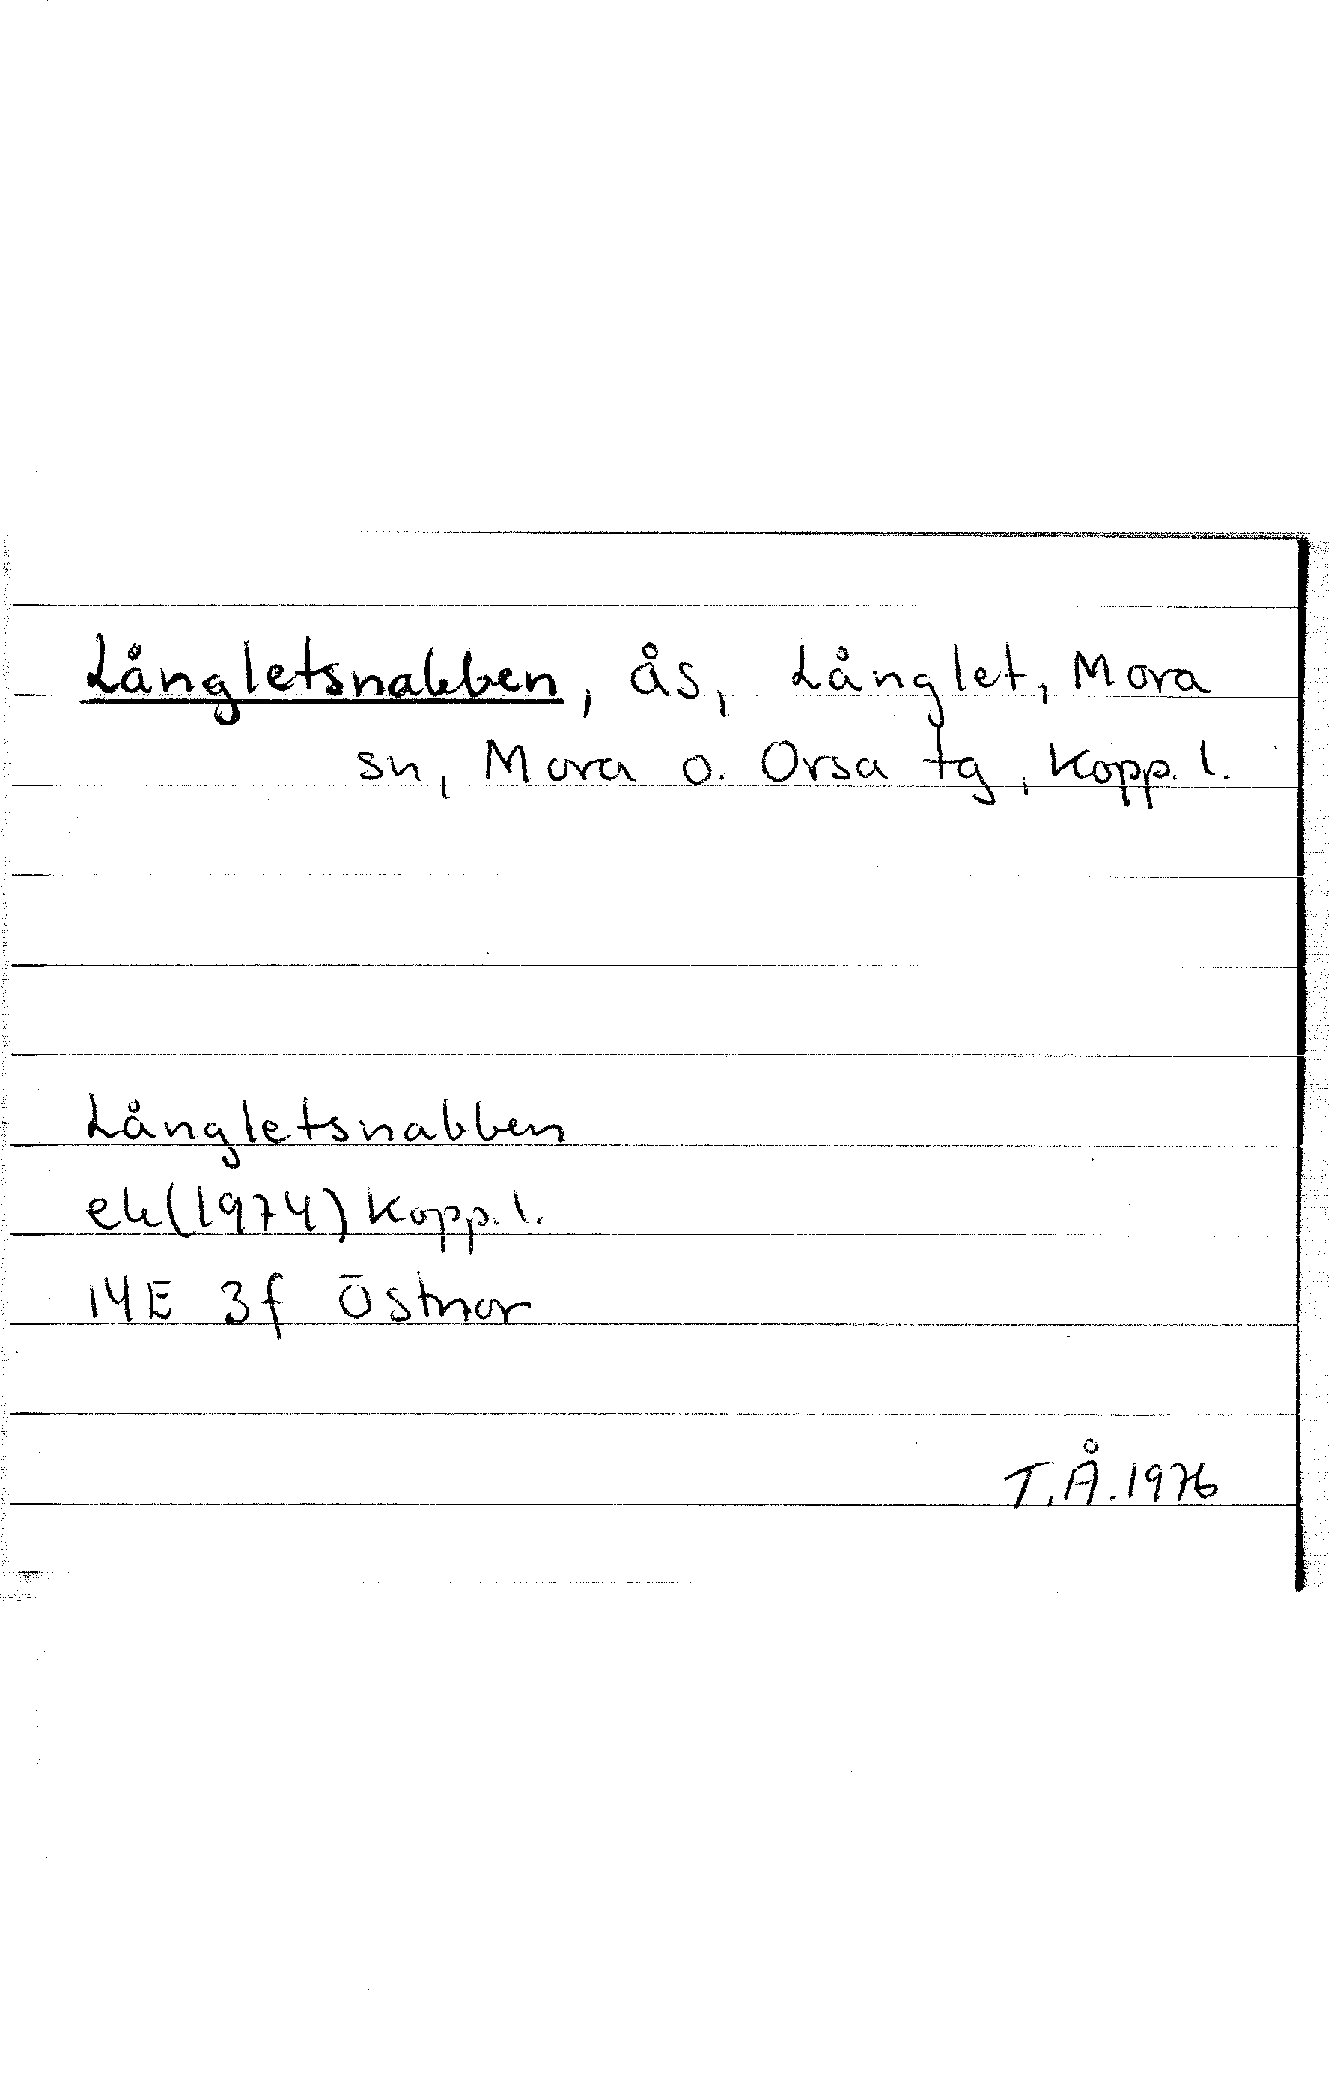 Långletsnabben, ås, Långlet, Mora
sn, Mora o. Orsa tg, Kopp. l.
Långletsnabben
ek(1974) Kopp. l.
14E 3f Östnor
T.Å. 1976